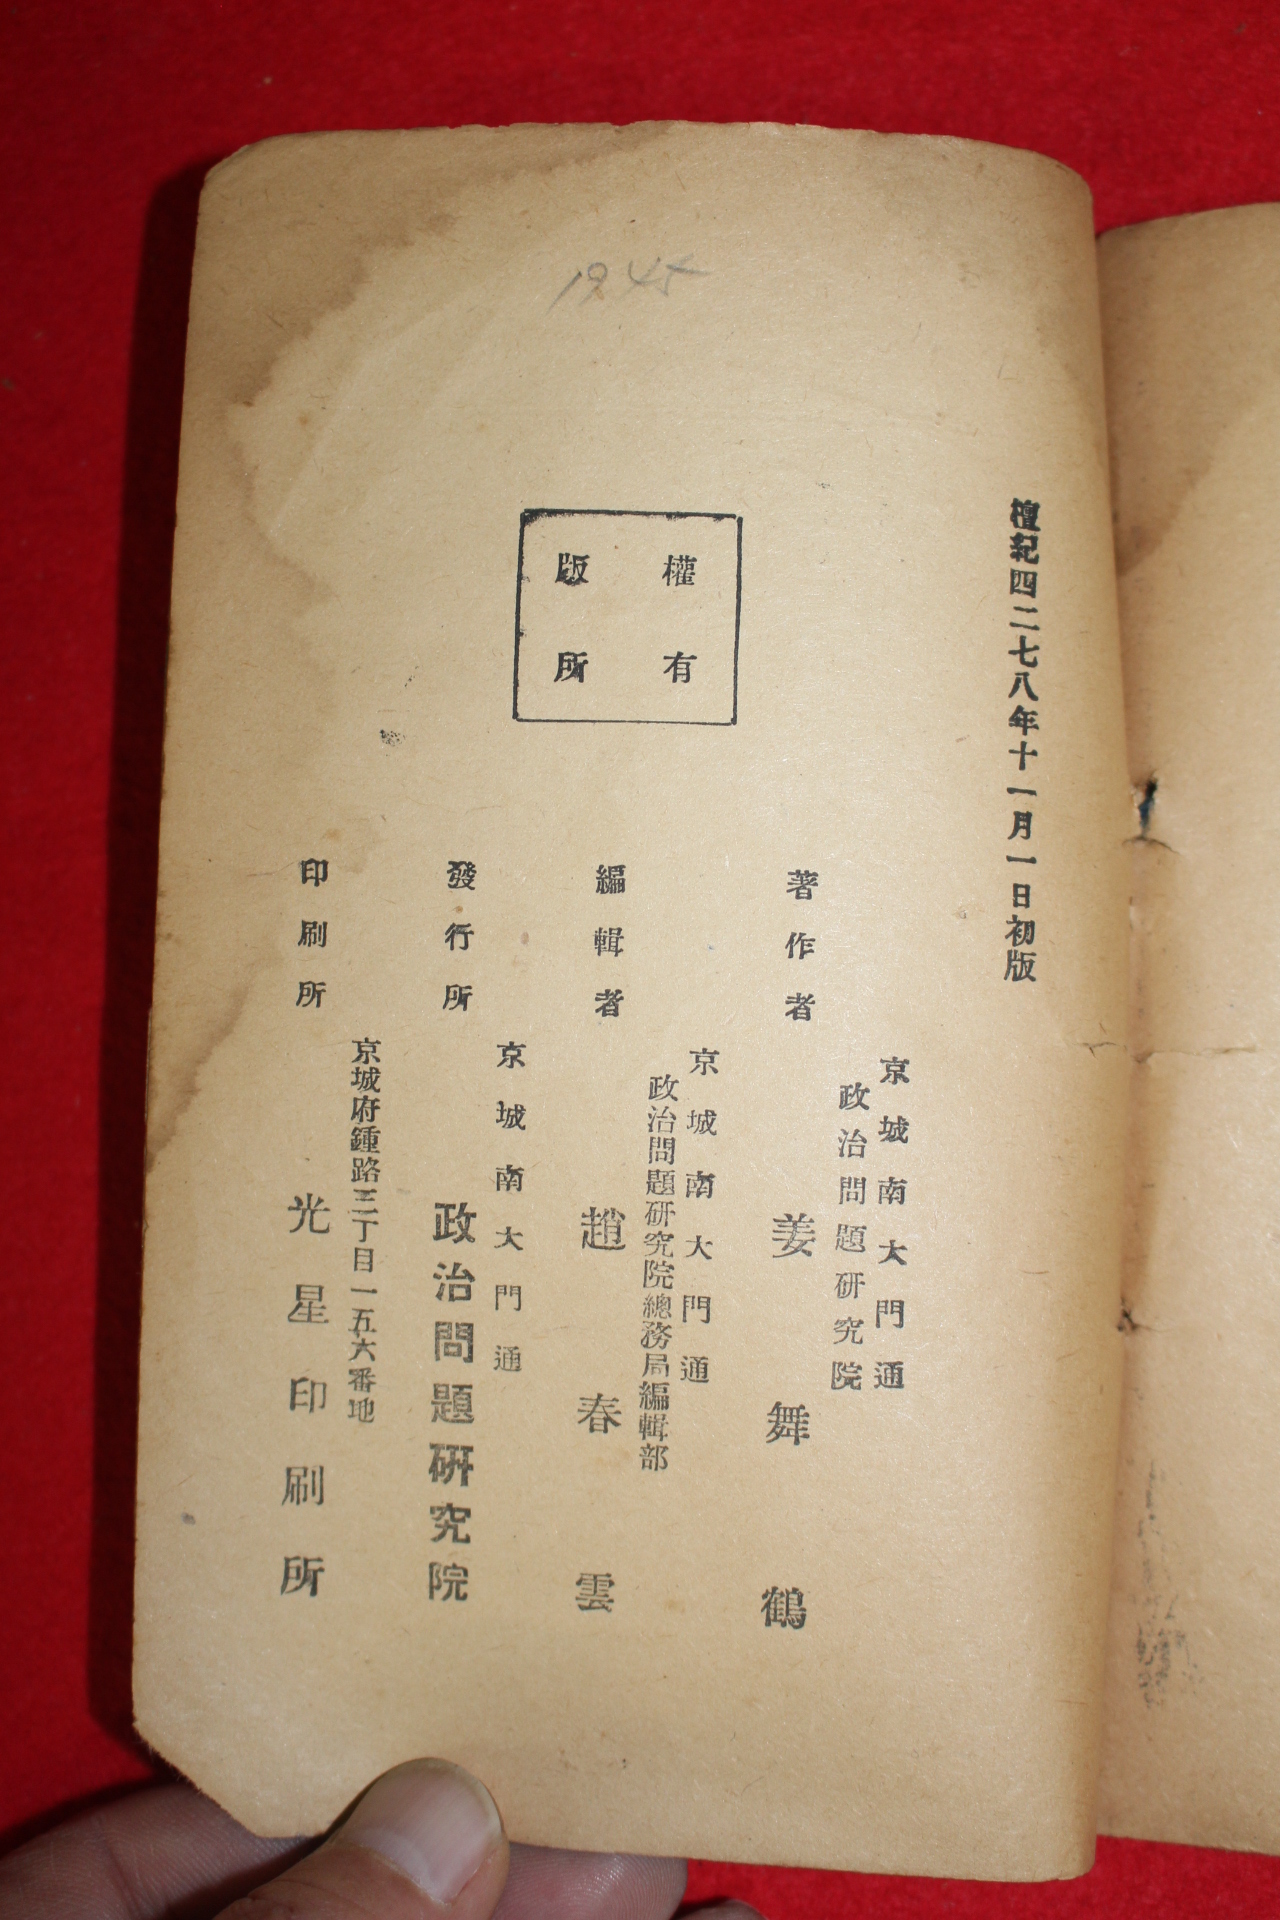 1945
檀紀四二七八年十一月一日初版
版權
所有
京城南大門通
政治問題研究院
著作者 姜舞鶴
京城南大門通
政治問題研究院總務局編輯部
編輯者 趙春雲
京城南大門通
發行所 政治問題研究院
京城府鍾路三丁目一五六番地
印刷所 光星印刷所